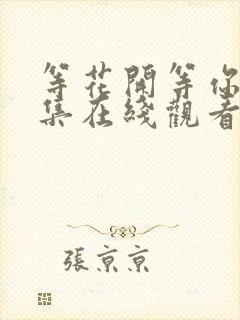 等花開等你
集在綫觀看
張京京